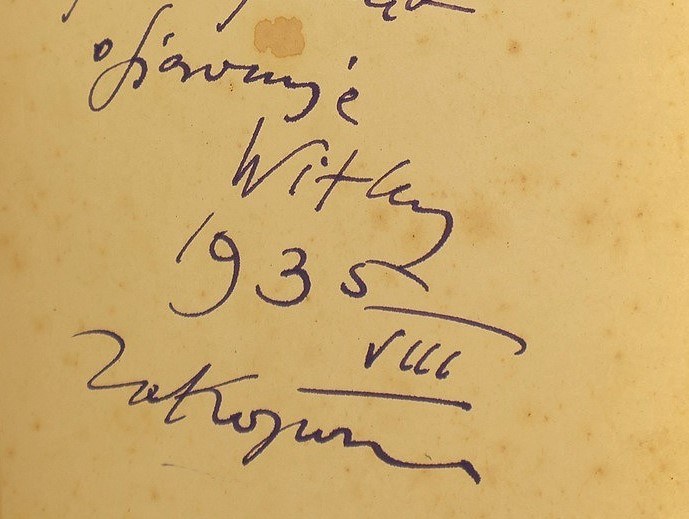 ofiaruje
Witkacy
1935
VIII
Zakopane